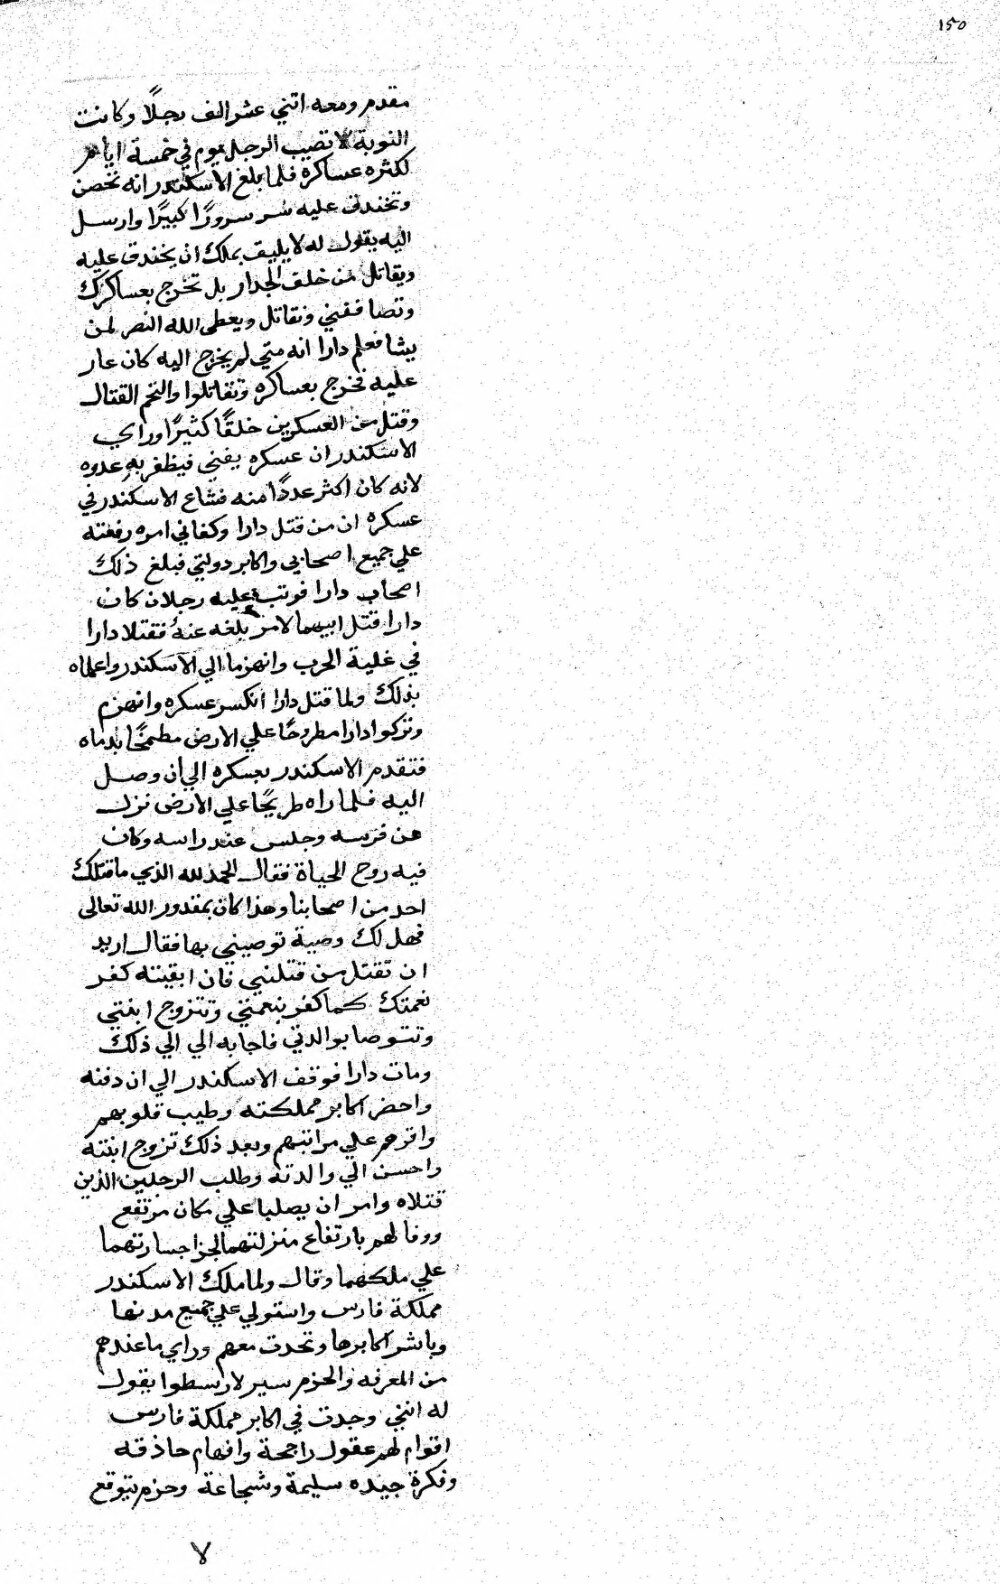 ١٥٥
مقدم ومعه اثني عشر الف رجلًا وكانت
النوبة لا تصيب الرجل يوم في خمسة ايام
لكثره عساكرة فلما بلغ الاسكندر انه تحصن
وتخندق عليه سر سرورًا كبيرًا وارسل
اليه يقول له لا يليق بملك ان يخندق عليه
ويقاتل من خلف الجدار بل تخرج بعساكرك
وتصاففني ونقاتل ويعطي الله النصر لمن
يشا فعلم دارا انه متي لم يخرج اليه كان عار
عليه فخرج بعساكره وتقاتلوا والتحم القتال
وقتل من العسكرين خلقًا كثيرًا وراي
الاسكندر ان عسكره يفني فيظفر به عدوه
لانه كان اكثر عددًا منه فشاع الاسكندر في
عسكره ان من قتل دارا وكفاني امره رفعته
علي جميع اصحابي واكابر دولتي فبلغ ذلك
اصحاب دارا فوتب عليه رجلان كان
دارا قتل ابيهما لامر بلغه عنهُ فقتلا دارا
في غلية الحرب وانهزما الي الاسكندر واعلماه
بذلك ولما قتل دارا انكسر عسكره وانهزم
وتركوا دارا مطروحًا علي الارض مطمخًا بدماه
فتقدم الاسكندر بعسكره الي ان وصل
اليه فلما راه طريحًا علي الارض نزل
عن فرسه وجلس عند راسه وكان
فيه روح الحياة فقال الحمد لله الذي ما قتلك
احد من اصحابنا وهذا كان بمقدور الله تعالى
فهل لك وصية توصيني بها فقال اريد
ان تقتل من قتلني فان ابقيته كفر
نعمتك كما كفر بنعمتي وتتزوج ابنتي
وتتوصا بوالدتي فاجابه الي الي ذلك
ومات دارا فوقف الاسكندر الي ان دفنه
واحضر اكابر مملكته وطيب قلوبهم
واقرهم علي مراتبهم وبعد ذلك تزوج ابنته
واحسن الي والدته وطلب الرجلين الذين
قتلاه وامر ان يصلبا علي مكان مرتفع
ووفا لهم بارتفاع منزلتهما لجزا جسارتهما
علي ملكهما وقال ولما ملك الاسكندر
مملكة فارس واستولي علي جميع مدنها
وباشر اكابرها وتحدت معهم وراي ما عندهم
من المعرفه والحزم سير لارسطوا يقول
له انني وجدت في اكابر مملكة فارس
اقوام لهم عقول راجحة وافهام حاذقه
وفكرة جيده سليمة وشجاعة وحزم يتوقع